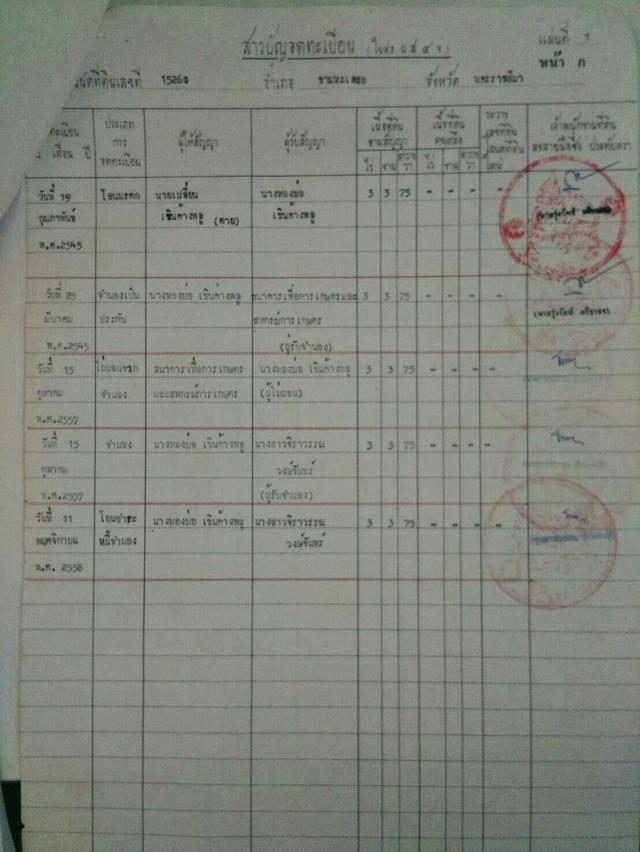 สารบัญจดทะเบียน (ใบต่อ น.ส ๔ จ)
แผ่นที่ 1
หน้า ก
ที่ดินเลขที่ 15260 อำเภอ ขามทะเลสอ จังหวัด นครราชสีมา
ทะเบียน
เดือน ปี
ประเภท
การ
จดทะเบียน
ผู้ให้สัญญา
ผู้รับสัญญา
เนื้อที่ดิน
ตามสัญญา
ไร่ งาน ตาราง
วา
เนื้อที่ดิน
คงเหลือ
ไร่ งาน ตาราง
วา
ระวาง
เลขที่ดิน
ใหม่
เจ้าพนักงานที่ดิน
ลงลายมือชื่อ ประทับตรา
วันที่ 19 โอนมรดก นายเปลี่ยน นางทองบ่อ 3 3 75 - - - -
กุมภาพันธ์ เขินค้างพลู (ตาย) เขินค้างพลู
พ.ศ.2545
วันที่ 25 จำนองเป็น นางทองบ่อ เขินค้างพลู ธนาคารเพื่อการเกษตรและ 3 3 75 - - - -
มีนาคม ประกัน สหกรณ์การเกษตร
พ.ศ.2545 (ผู้รับจำนอง)
วันที่ 15 ไถ่ถอนจาก ธนาคารเพื่อการเกษตร นางทองบ่อ เขินค้างพลู 3 3 75 - - - -
ตุลาคม จำนอง และสหกรณ์การเกษตร (ผู้ไถ่ถอน)
พ.ศ.2557
วันที่ 15 จำนอง นางทองบ่อ เขินค้างพลู นางสาวจิราวรรณ 3 3 75 - - - -
ตุลาคม วงษ์จันทร์
พ.ศ.2557 (ผู้รับจำนอง)
วันที่ 11 โอนชำระ นางทองบ่อ เขินค้างพลู นางสาวจิราวรรณ 3 3 75 - - - -
พฤศจิกายน หนี้จำนอง วงษ์จันทร์
พ.ศ. 2558